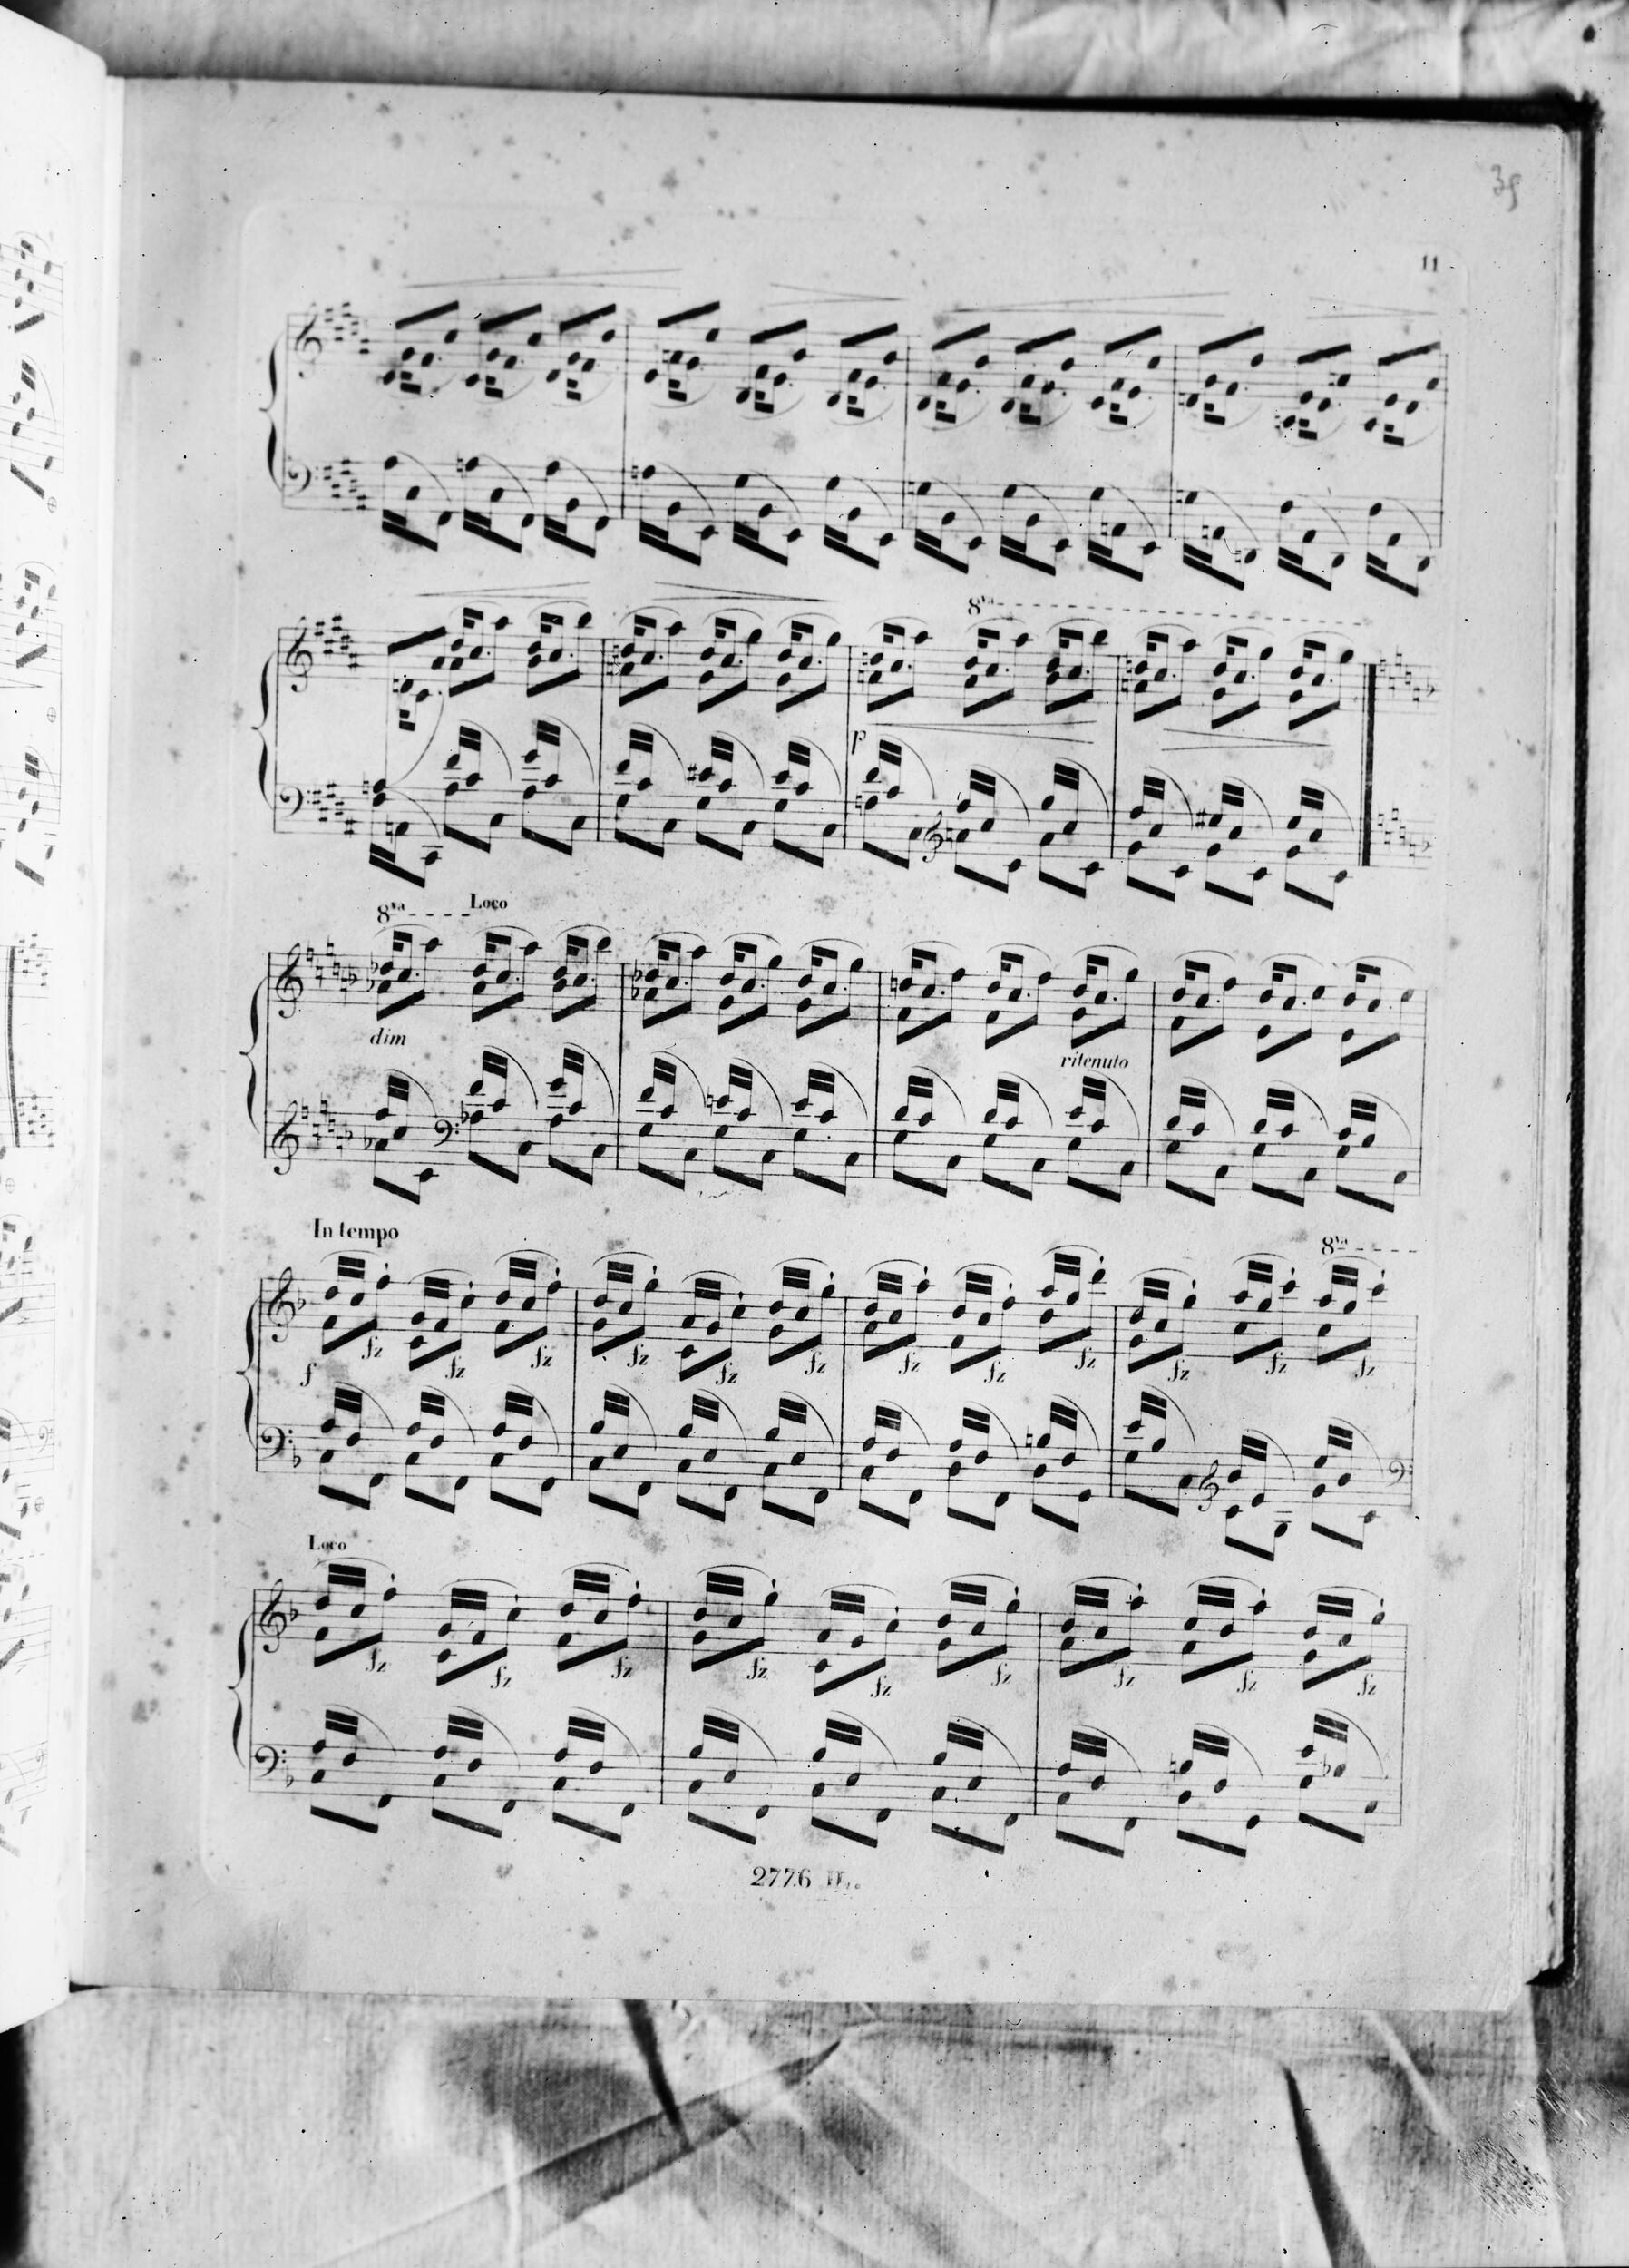 39
11
8va
p
8va Loco
dim
ritenuto
In tempo
8va
fz fz fz fz fz fz fz fz fz fz fz fz
f
Loco
fz fz fz fz fz fz fz fz fz
2776